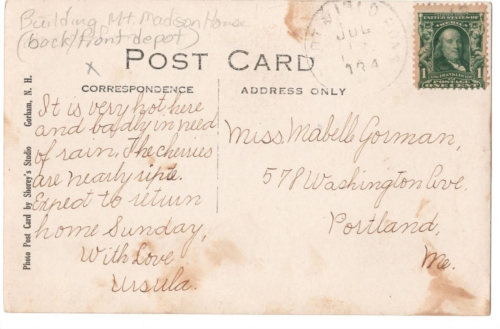 Building Mt. Madison House
(back/front depot)
POST CARD
CORRESPONDENCE
ADDRESS ONLY
It is very hot here
and badly in need
of rain. The cherries
are nearly ripe.
Expect to return
home Sunday,
With Love
Ursula.
Miss Mabelle Gorman,
578 Washington Ave.
Portland,
Me.
Photo Post Card by Shorey's Studio Gorham, N. H.
JUL
1
POSTAGE
1